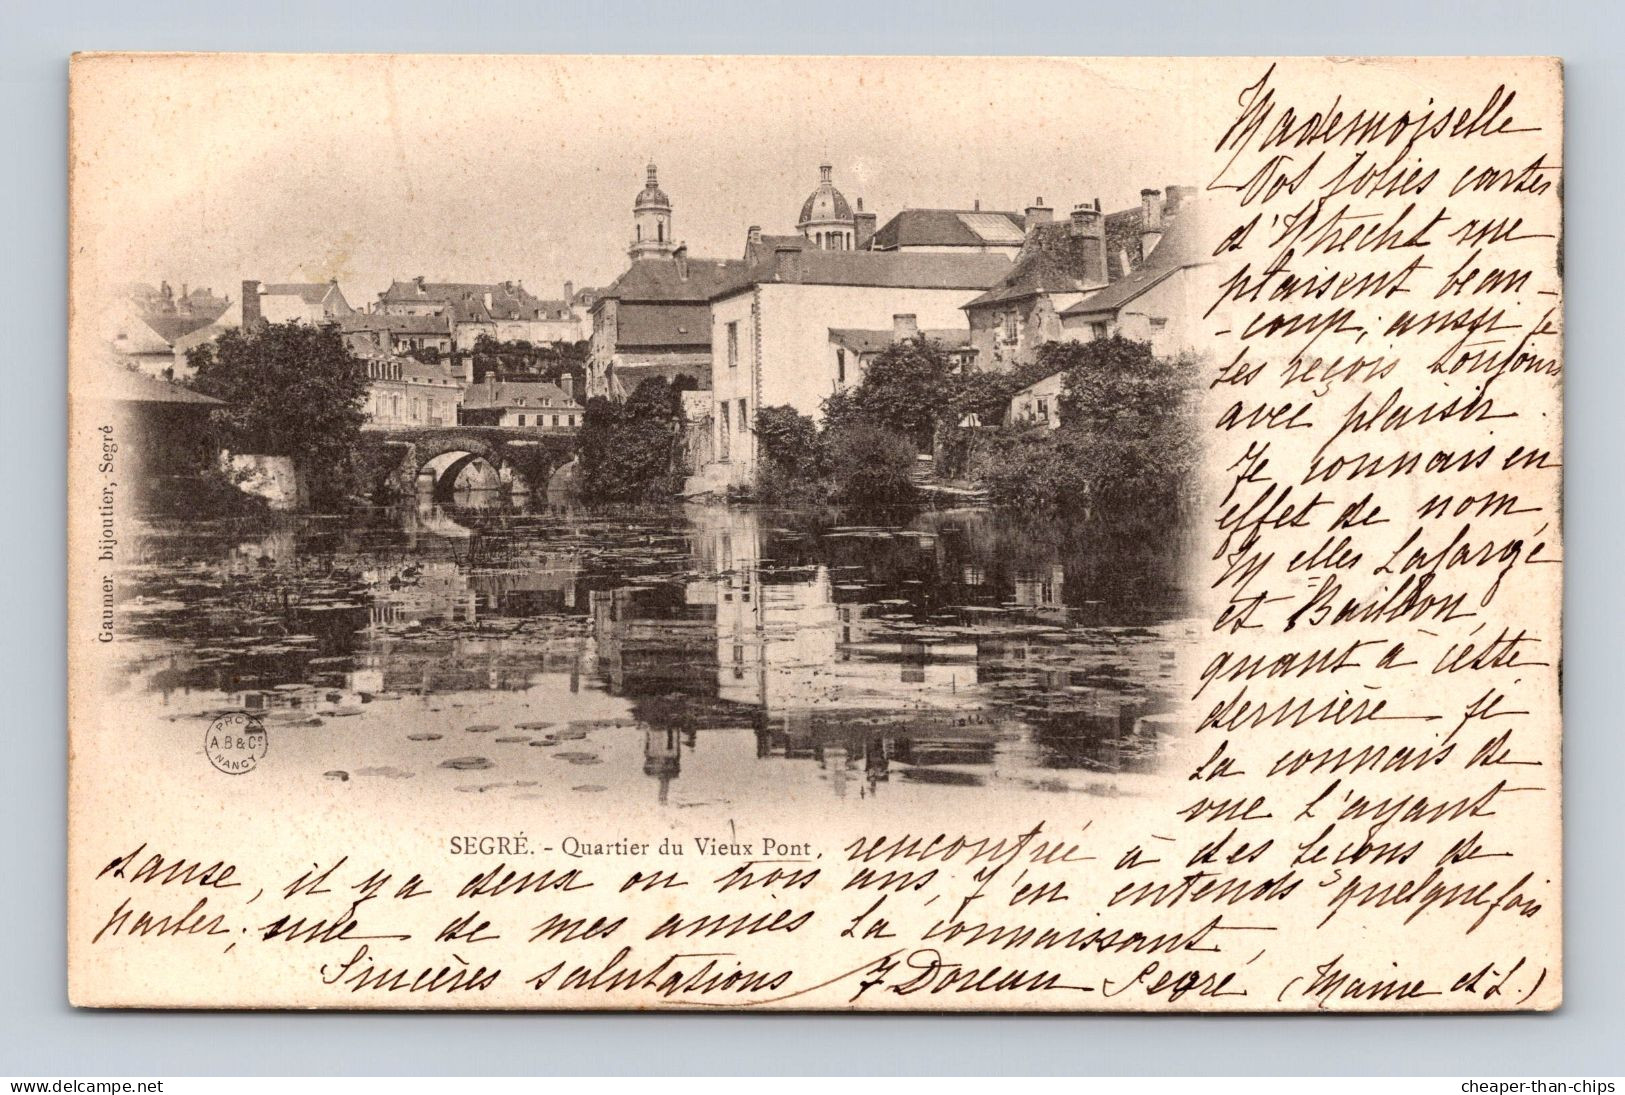 Mademoiselle
Vos jolies cartes
d'Utrecht me
plaisent beau-
-coup, aussi je
les reçois toujours
avec plaisir.
Je connais en
effet de nom,
My elles Lafarge
et Bailbon,
quant à cette
dernière je
la connais de
vue l'ayant
rencontrée à des leçons de
danse, il y a deux ou trois ans, j'en entends quelquefois
parler, une de mes amies la connaissant,
Sincères salutations J Doreau Segré (Maine et L.)
SEGRÉ. - Quartier du Vieux Pont.
Gaumer bijoutier, Segré
PHOT
A.B & Cº
NANCY
cheaper-than-chips